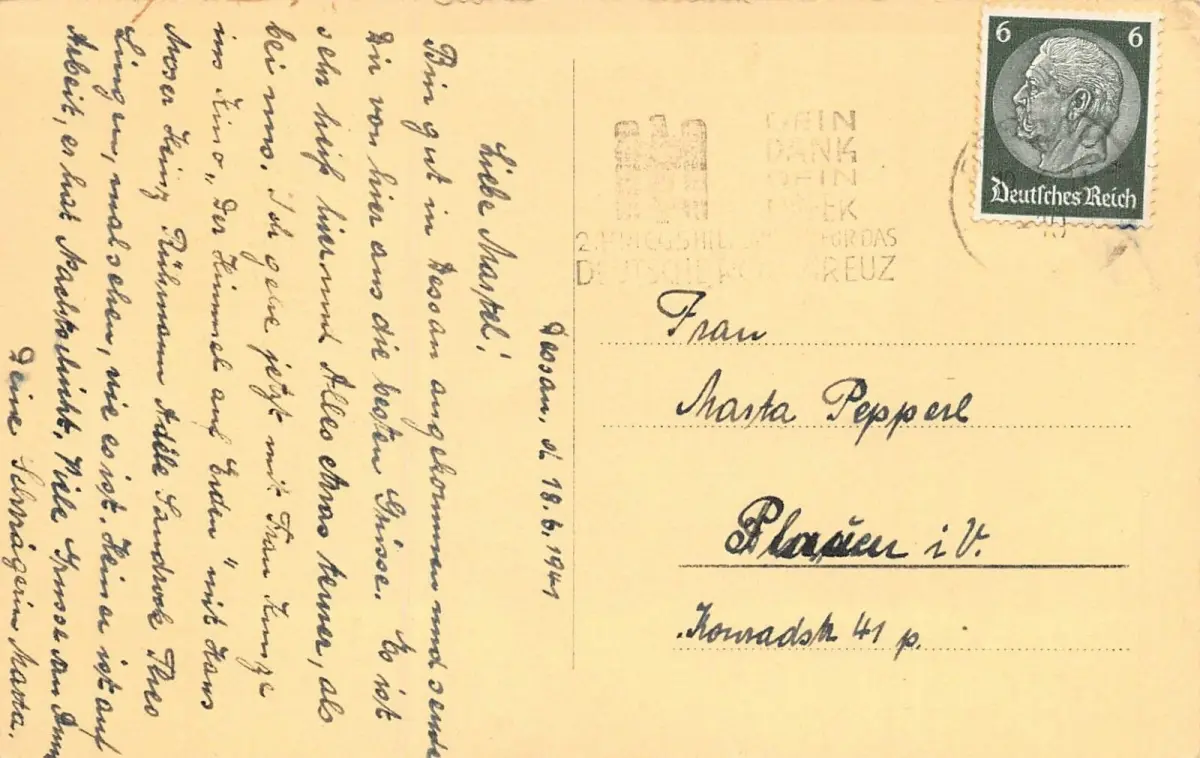 Dessau, d. 18.6.1941
Liebe Martel!
Bin gut in Dessau angekommen und sende
Dir von hier aus die besten Grüsse. Es ist
sehr heiß hier und Alles etwas teurer, als
bei uns. Ich gehe jetzt mit Frau Kunze
ins Kino „Der Himmel auf Erden" mit Hans
Moser Heinz Rühmann Adele Sandrock Theo
Lingen, mal sehen, wie es ist. Heiner ist auf
Arbeit, er hat Nachtschicht, Viele Grüsse an
Deine Schwägerin Marta.
DEIN
DANK
DEIN
2. KRIEGSHILFSWERK FÜR DAS
DEUTSCHE ROTE KREUZ
6 6
Deutsches Reich
Frau
Marta Pepperl
Plauen i. V.
Konradstr 41 p.